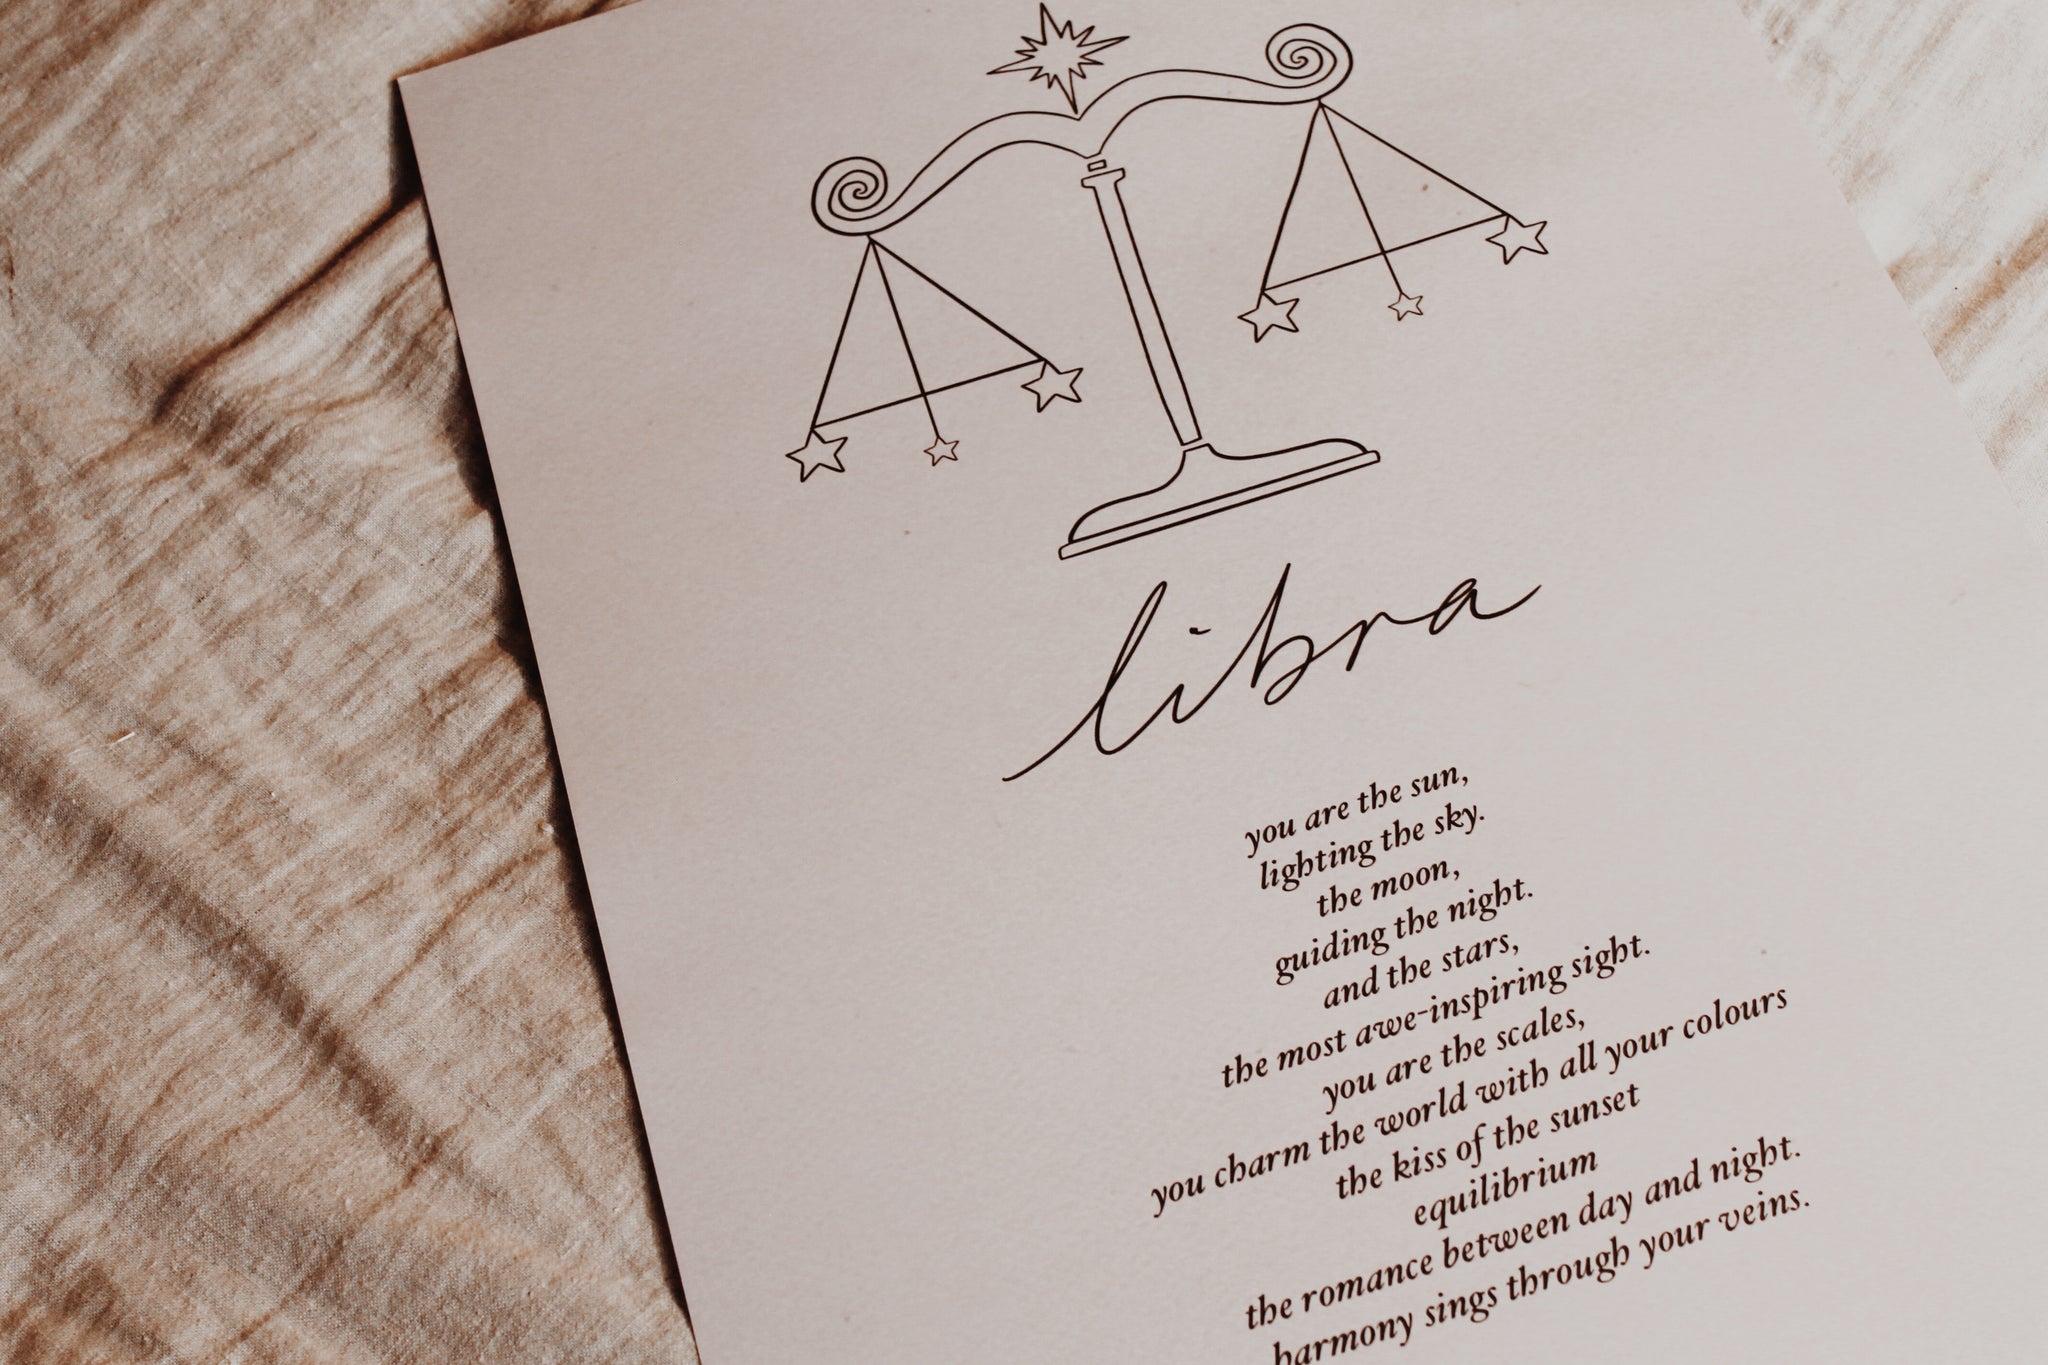 libra
you are the sun,
lighting the sky.
the moon,
guiding the night.
and the stars,
the most awe-inspiring sight.
you are the scales,
you charm the world with all your colours
the kiss of the sunset
equilibrium
the romance between day and night.
harmony sings through your veins.